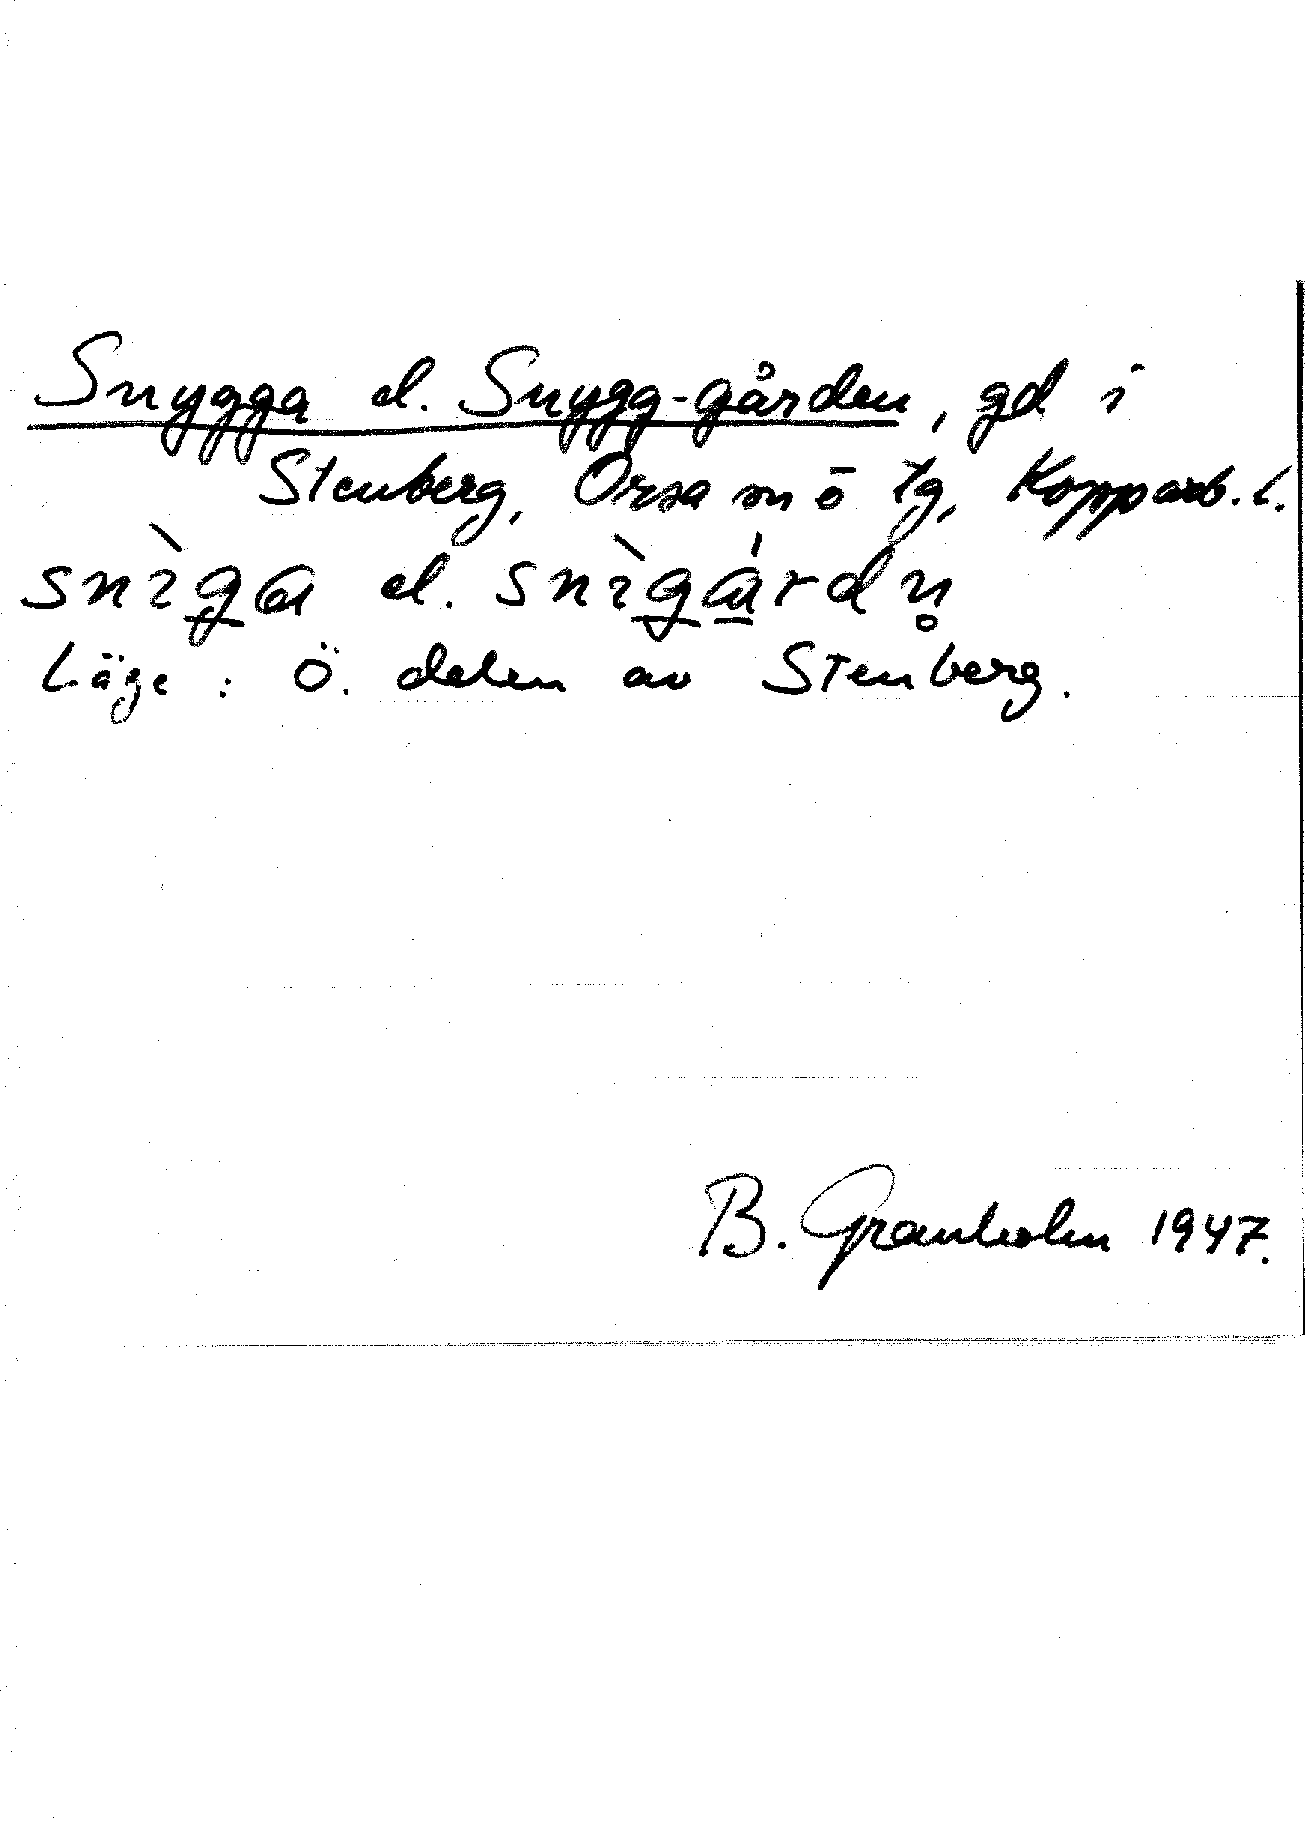 Snygga el. Snygg-gården, gd i
Stenberg, Orsa sn o tg, Kopparb. l.
snìga el. snìgárdn̥
Läge : Ö. delen av Stenberg.
B. Granholm 1947.